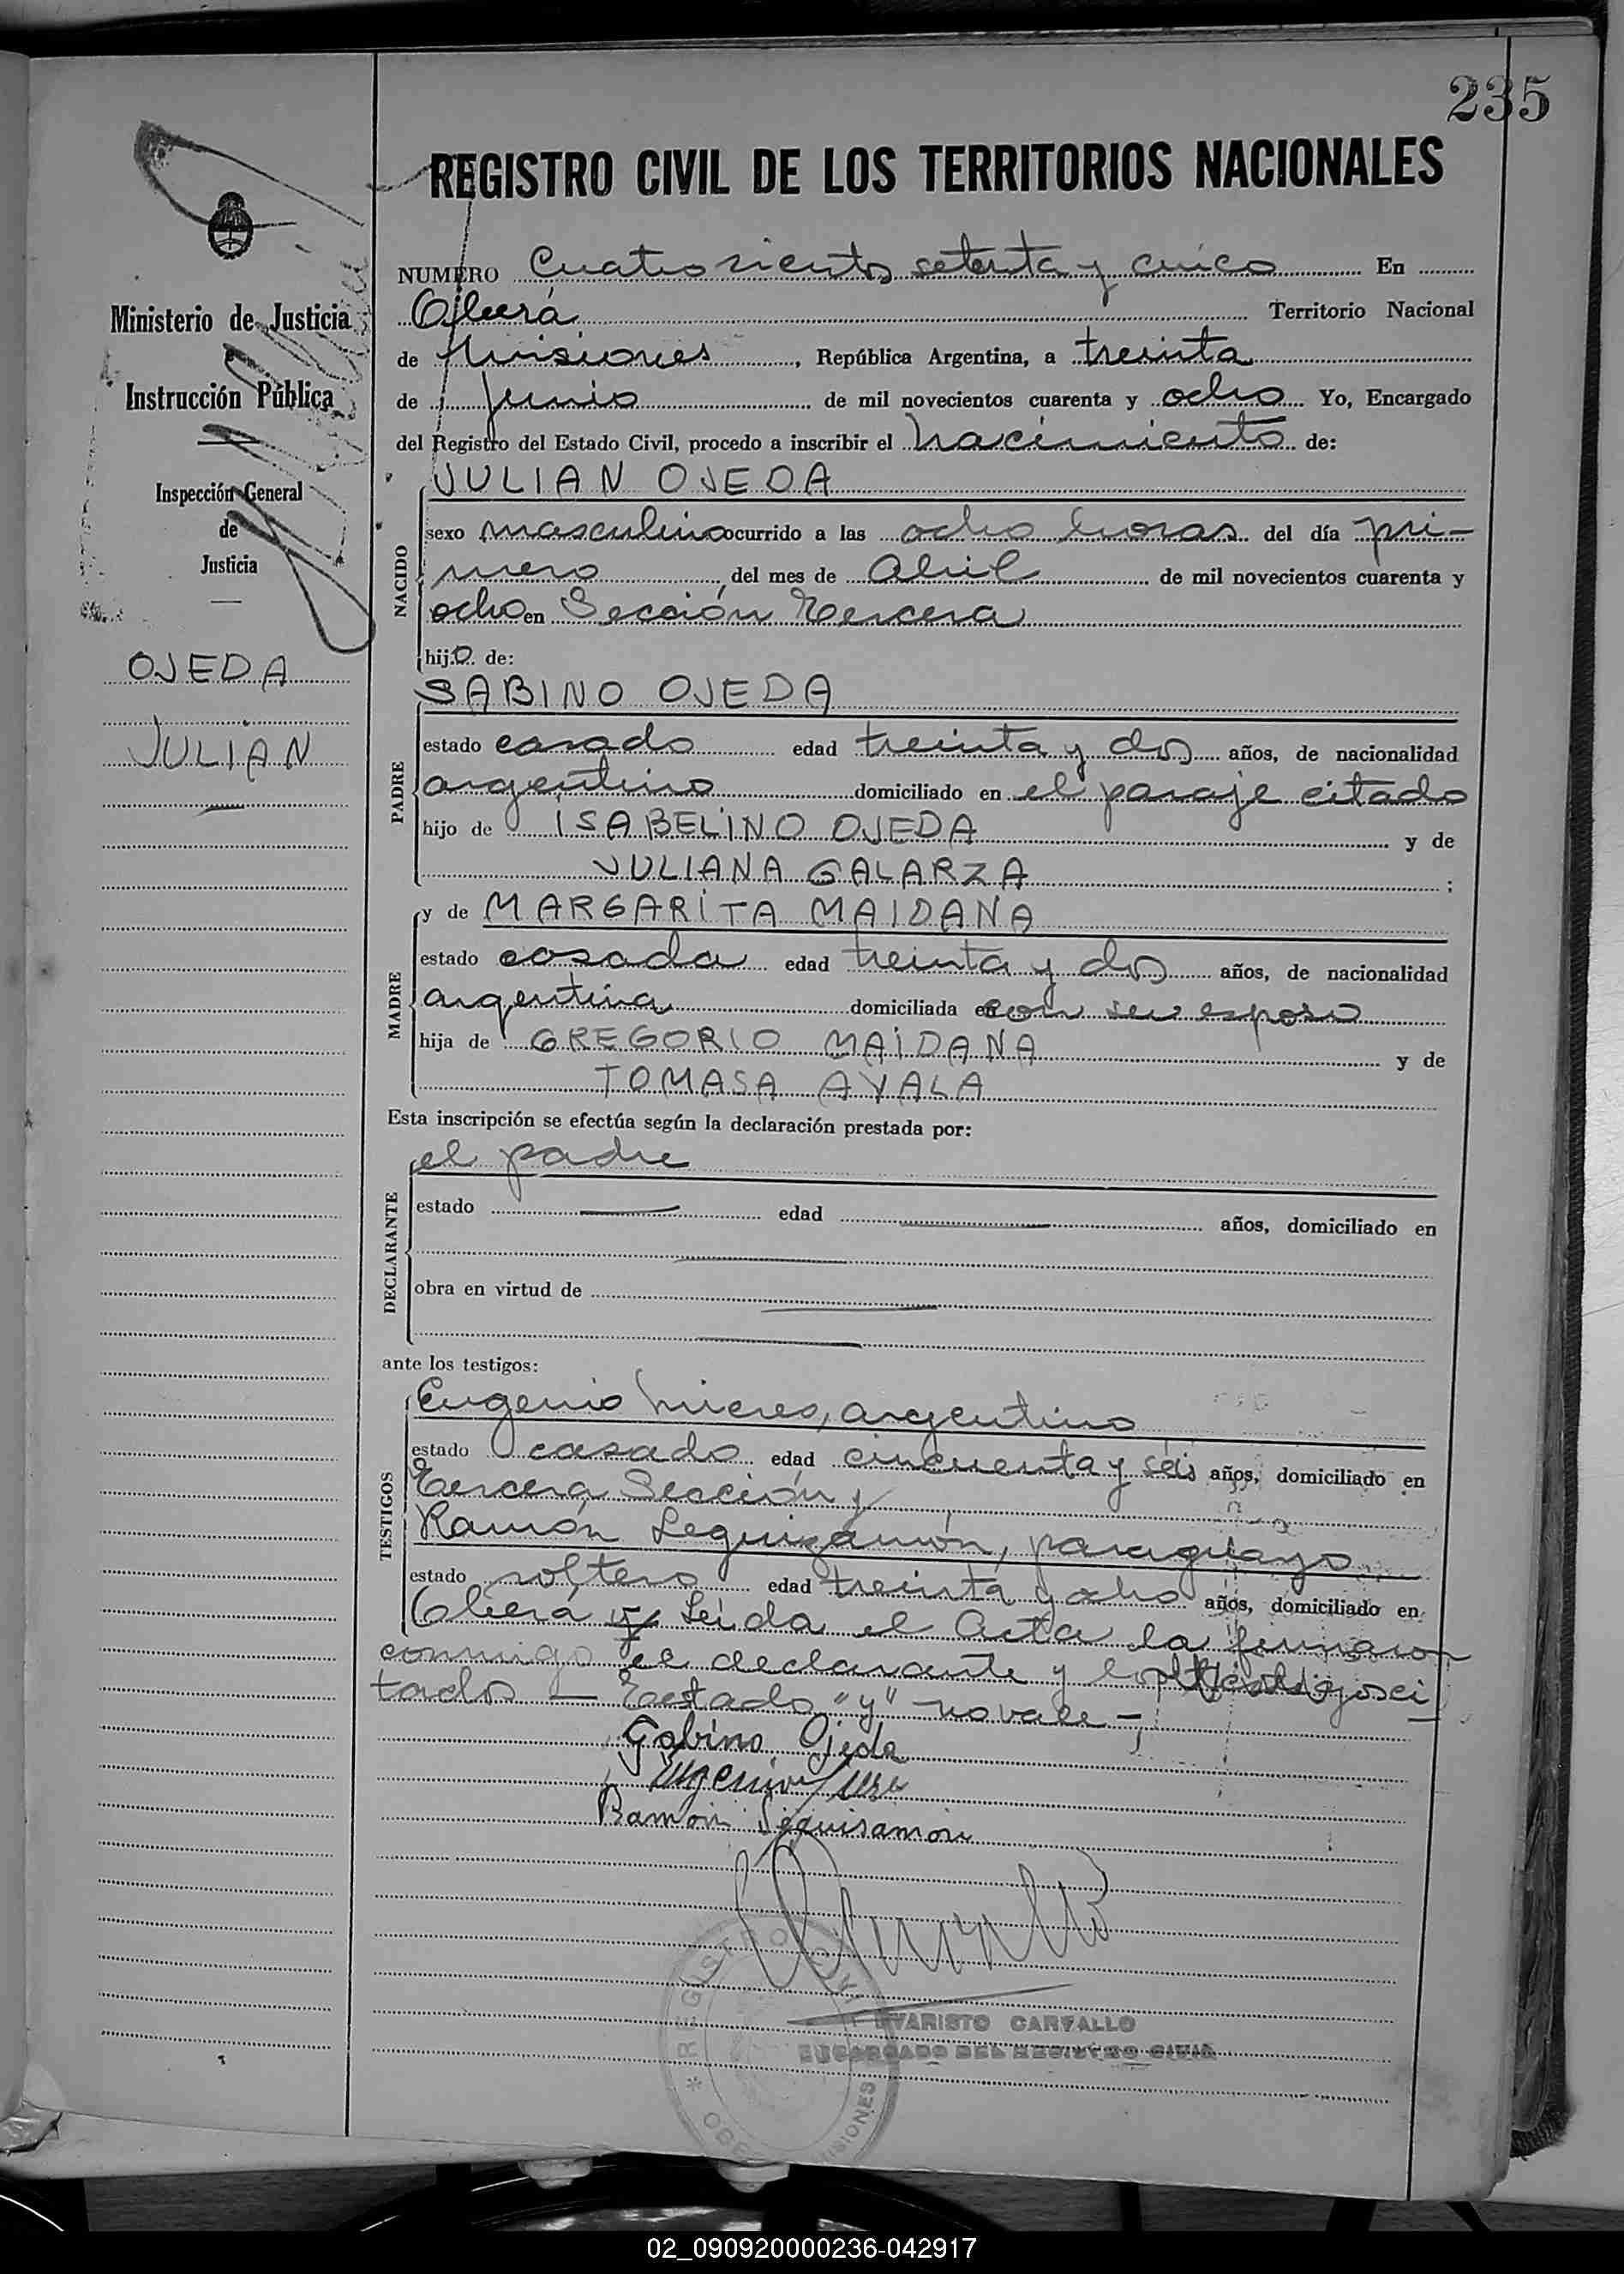 235
REGISTRO CIVIL DE LOS TERRITORIOS NACIONALES
Ministerio de Justicia
e
Instrucción Pública
Inspección General
de
Justicia
OJEDA
JULIAN
NUMERO Cuatrosciento setenta y cinco En
Oberá Territorio Nacional
de Misiones, República Argentina, a treinta
de junio de mil novecientos cuarenta y ocho Yo, Encargado
del Registro del Estado Civil, procedo a inscribir el nacimiento de:
NACIDO
JULIAN OJEDA
sexo masculino ocurrido a las ocho horas del día pri-
mero, del mes de Abril de mil novecientos cuarenta y
ocho en Sección Tercera
hijo de:
PADRE
SABINO OJEDA
estado casado edad treinta y dos años, de nacionalidad
argentino domiciliado en el paraje citado
hijo de ISABELINO OJEDA y de
JULIANA GALARZA ;
MADRE
y de MARGARITA MAIDANA
estado casada edad treinta y dos años, de nacionalidad
argentina domiciliada en con su esposo
hija de GREGORIO MAIDANA y de
TOMASA AYALA
Esta inscripción se efectúa según la declaración prestada por:
DECLARANTE
el padre
estado — edad — años, domiciliado en
—
obra en virtud de —
—
ante los testigos:
TESTIGOS
Eugenio Mieres, argentino
estado casado edad cincuenta y seis años, domiciliado en
Tercera Sección y
Ramón Leguizamón, paraguayo
estado soltero edad treinta y ocho años, domiciliado en
Oberá y Leida el Acta la firmaron
conmigo el declarante y los testigos ci
tados — Testado "y" no vale —
Gabino Ojeda
Eugenio
Ramón Leguisamon
EVARISTO CARVALLO
ENCARGADO DEL REGISTRO CIVIL
REGISTRO CIVIL
MISIONES
02_090920000236-042917